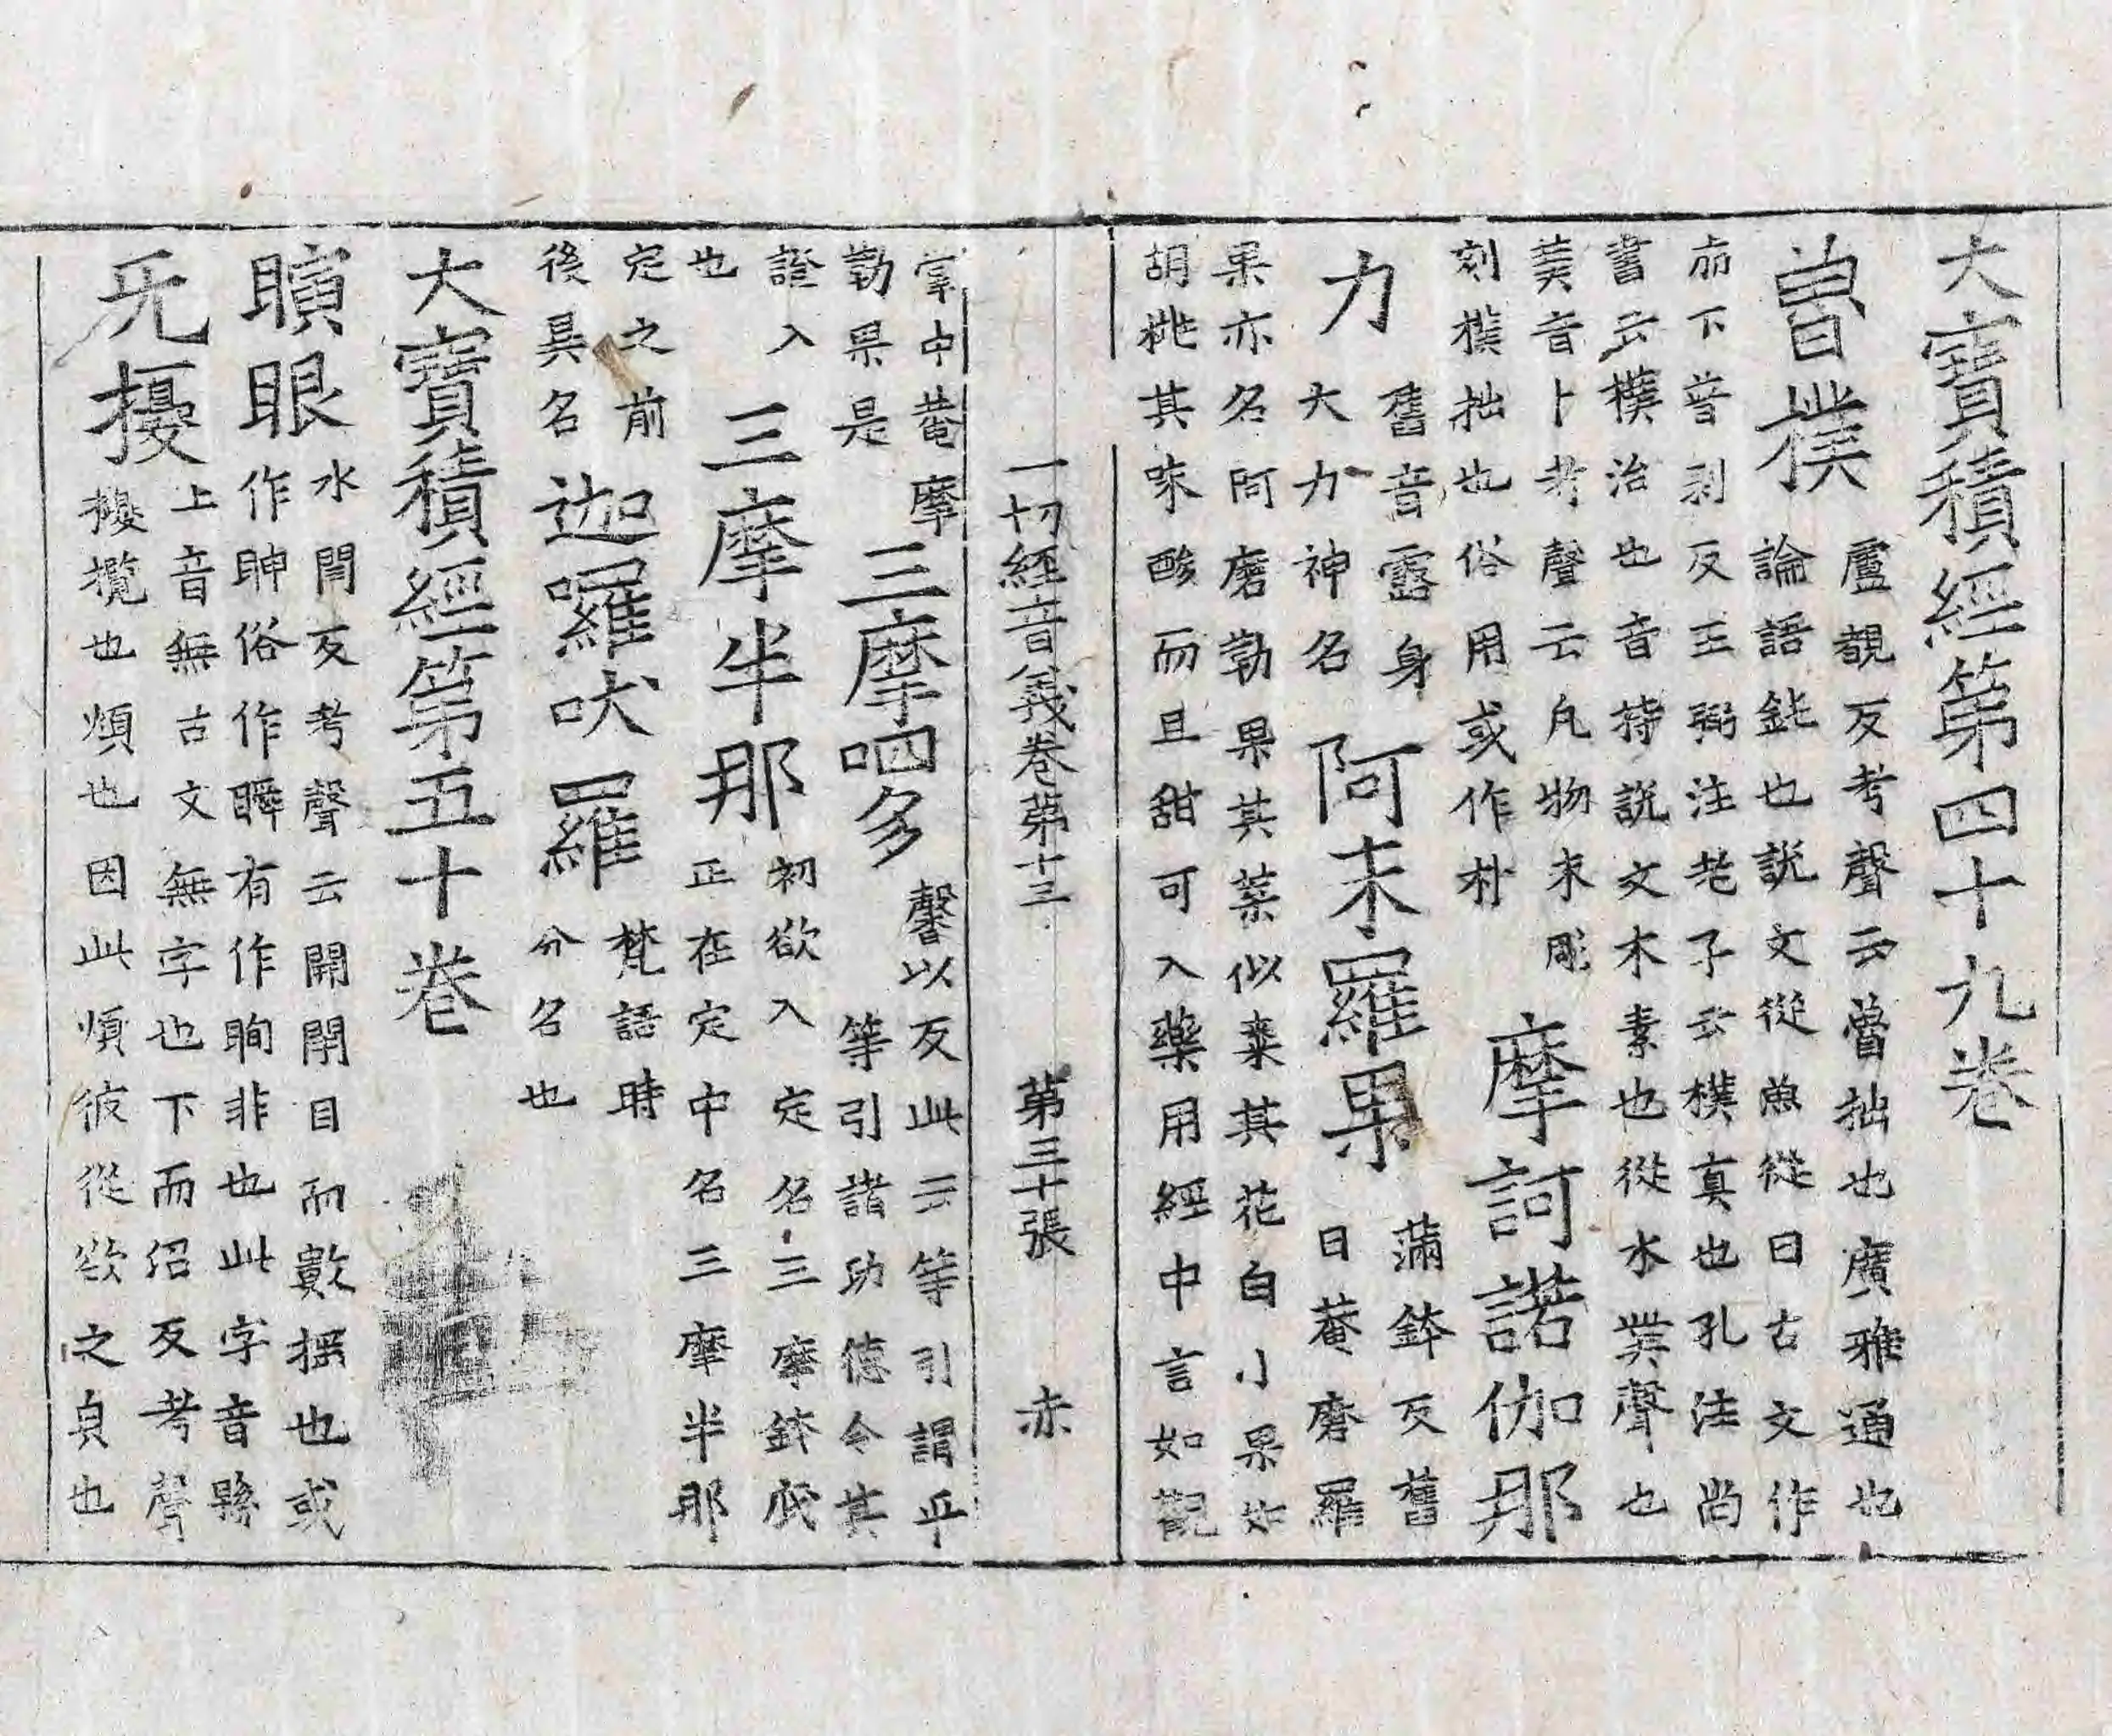 大寶積經第四十九卷
魯樸
盧覩反考聲云魯拙也廣雅通也
論語鈍也說文從魚從曰古文作
𣥐下普剥反王弼注老子云樸真也孔注尚
書云樸治也音持說文木素也從木菐聲也
菐音卜考聲云凡物未彫
刻樸拙也俗用或作朴
摩訶諾伽那
力
舊音露身
大力神名
阿末羅果
滿鉢反舊
曰菴磨羅
果亦名阿磨勒果其葉似棗其花白小果如
胡桃其味酸而且甜可入藥用經中言如觀
一切經音義卷第十三 第三十張 赤
掌中菴摩
勒果是
三摩呬多
馨以反此云等引謂平
等引諸功德令其
證入
也
三摩半那
初欲入定名三摩鉢底
正在定中名三摩半那
定之前
後具名
迦囉吠羅
梵語時
分名也
大寶積經第五十卷
瞚眼
水閏反考聲云開閉目而數搖也或
作眒俗作瞬有作眴非也此字音縣
无擾
上音無古文無字也下而沼反考聲
擾攪也煩也因此煩彼從欲之皃也